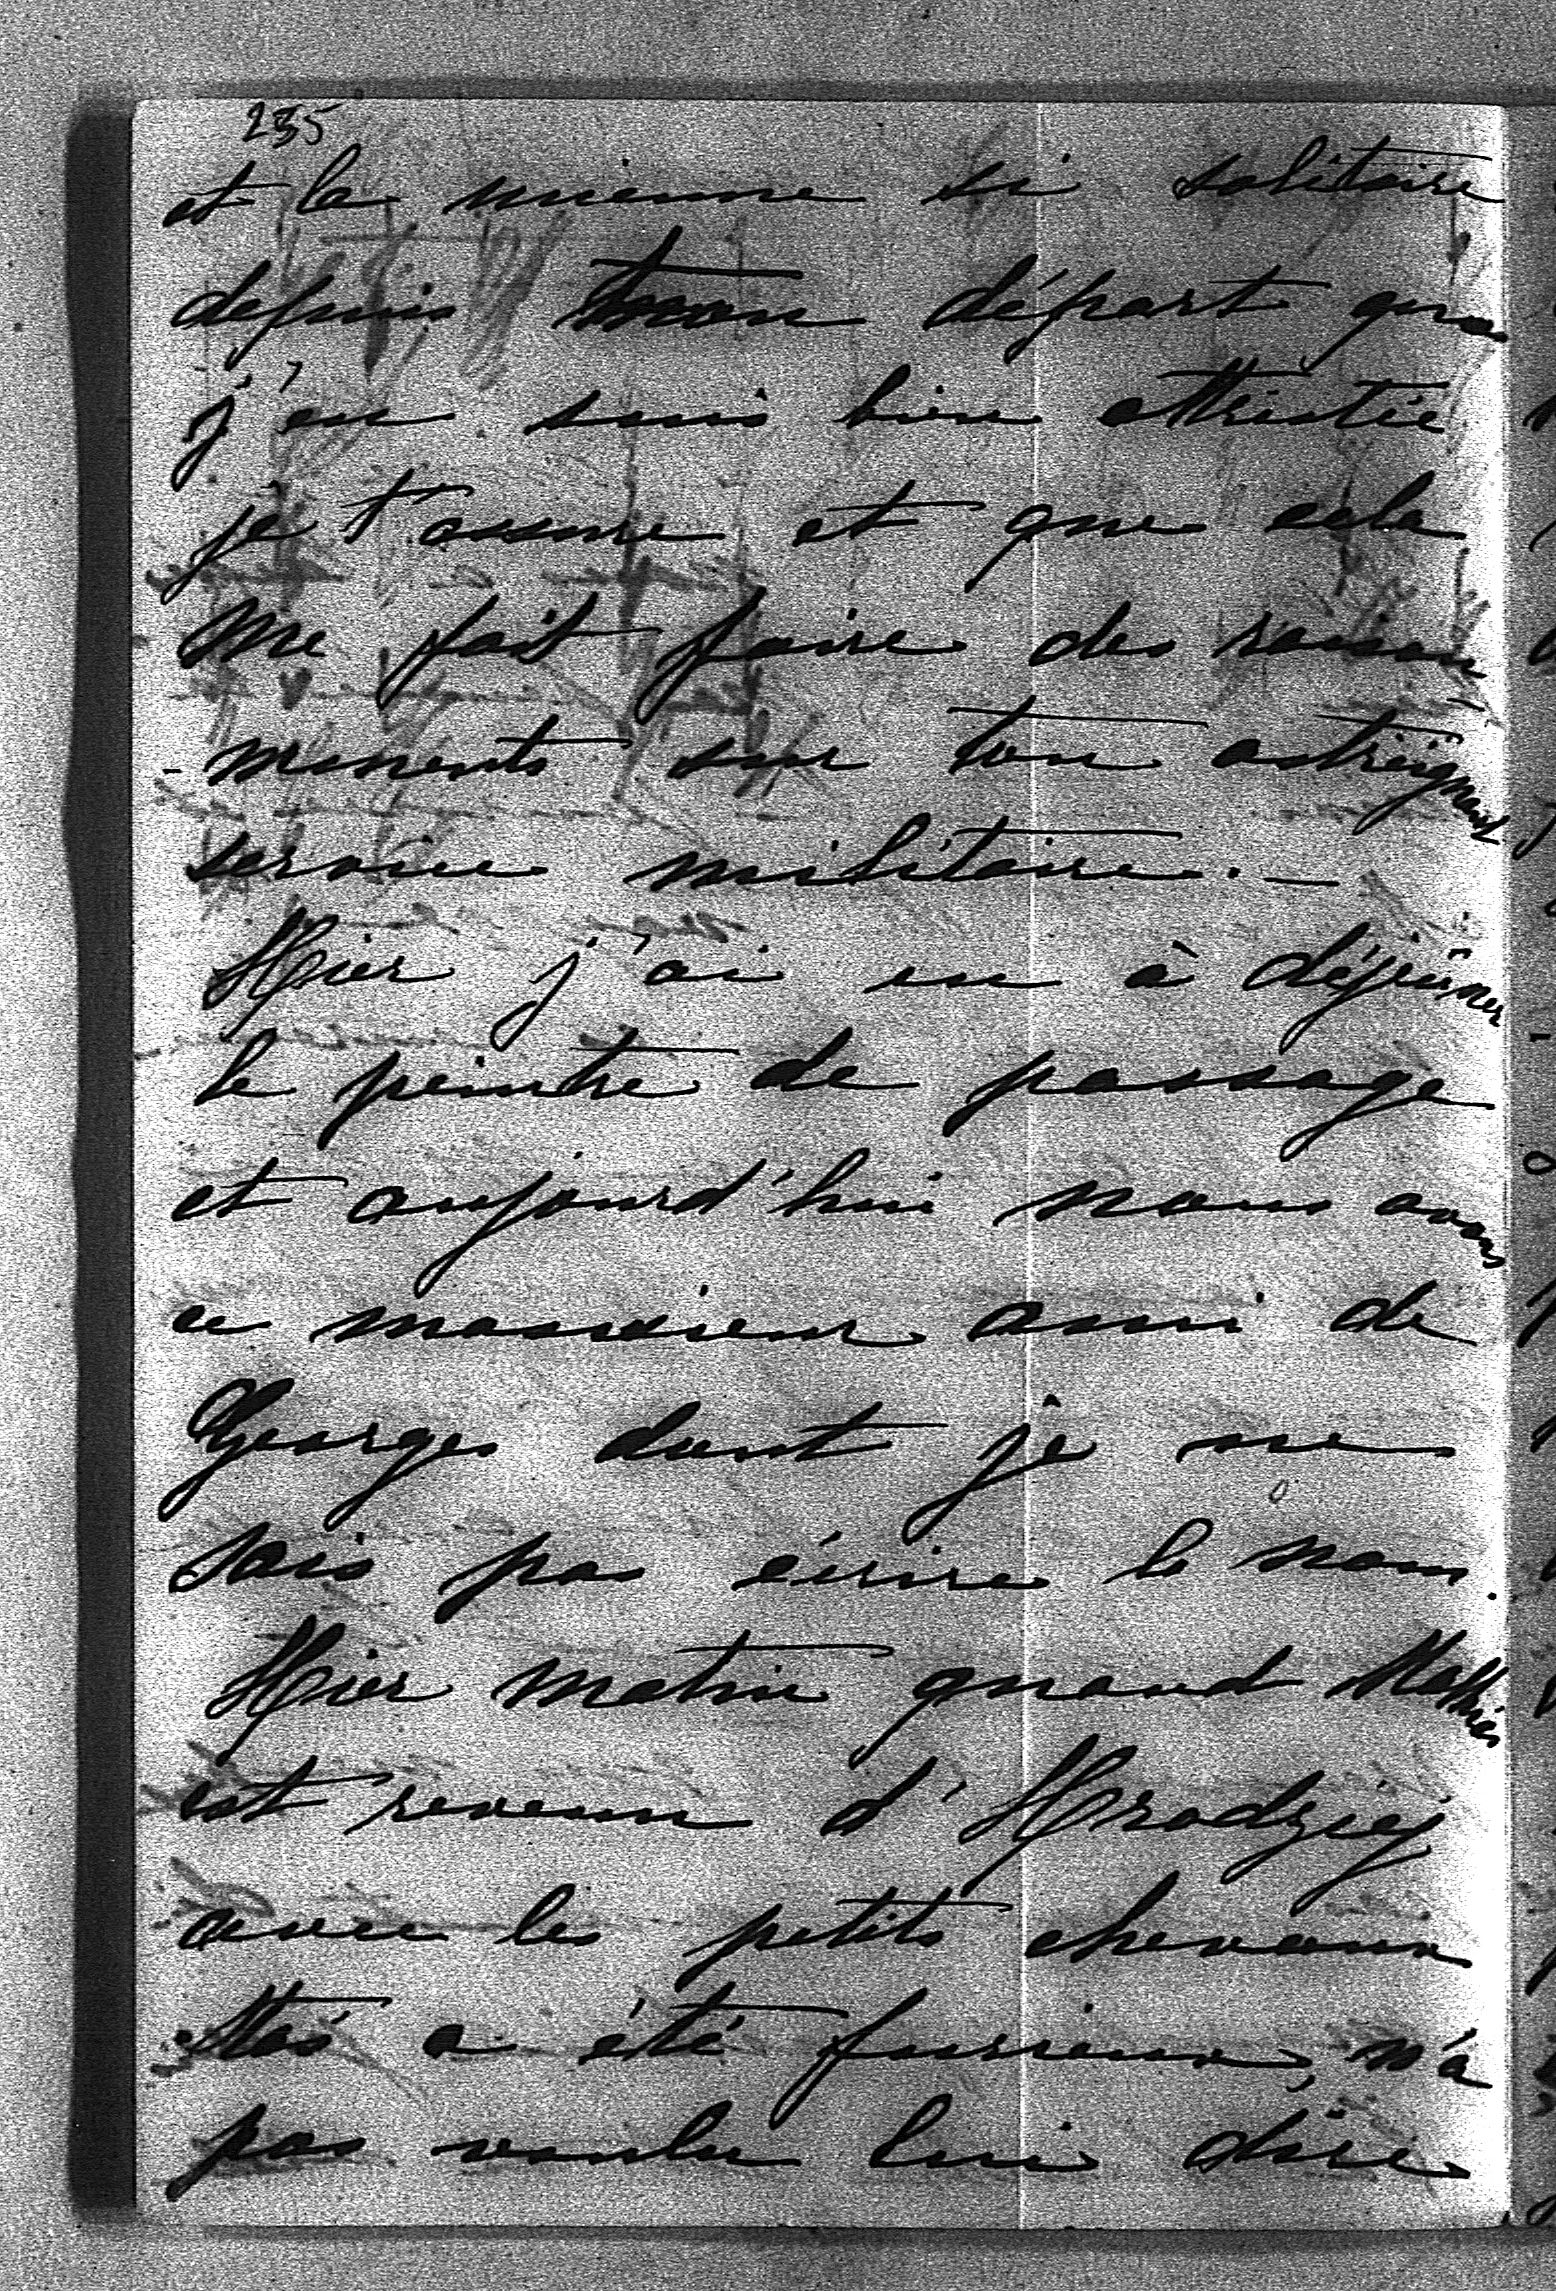 235
et la mienne si solitaire
depuis ton départ que
j'en suis bien attristée
je t'assure et que cela
me fait faire des raison
- nements sur ton astreignant
service militaire. —
Hier j'ai eu à déjeûner
le peintre de passage
et aujourd'hui nous avons
ce monsieur ami de
Georges dont je ne
sais pas écrire le nom.
Hier matin quand Mathies
est revenu d'Hrodziej
avec les petits chevaux
a été furieux, n'a
pas voulu lui dire